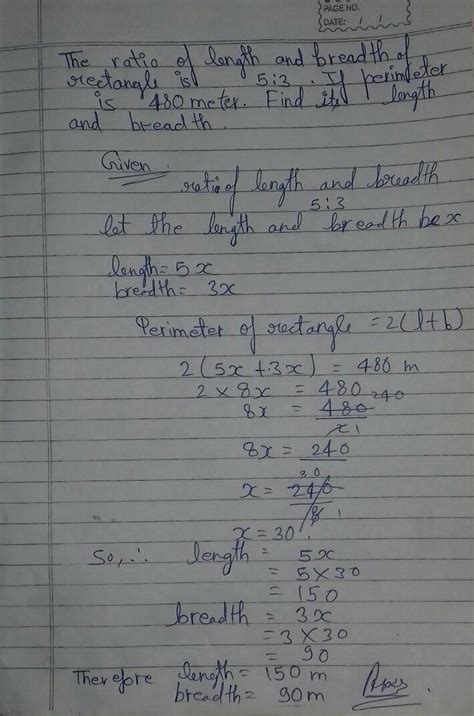 PAGE NO.
DATE: / /
The ratio of length and breadth of
rectangle is 5:3. If perimeter
is 480 meter. Find its length
and breadth.
Given
ratio of length and breadth
5:3
let the length and breadth be x
length = 5x
breadth = 3x
Perimeter of rectangle = 2(l+b)
2(5x+3x) = 480 m
2 × 8x = 480
8x = 480 240
2 1
8x = 240
30
x = 240
8 1
x = 30
So, ∴ length = 5x
= 5×30
= 150
breadth = 3x
= 3×30
= 90
Therefore length = 150 m
breadth = 90m